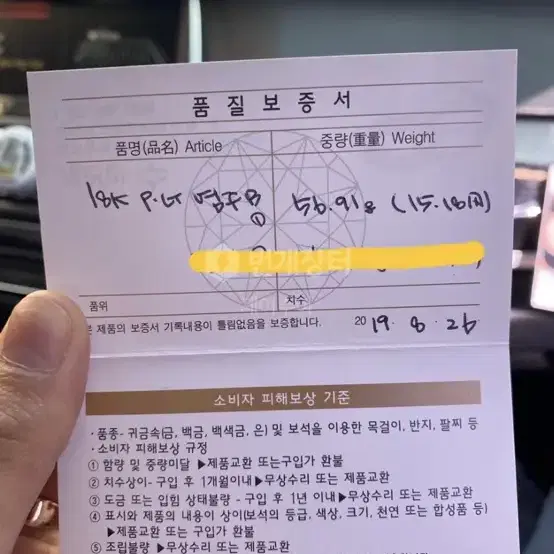 품 질 보 증 서
품명(品名) Article 중량(重量) Weight
18K P.G 56.91g (15.18
①
번개장터
품위 치수
본 제품의 보증서 기록내용이 틀림없음을 보증합니다. 2019. 8. 26
소비자 피해보상 기준
· 품종- 귀금속(금, 백금, 백색금, 은) 및 보석을 이용한 목걸이, 반지, 팔찌 등
· 소비자 피해보상 규정
① 함량 및 중량미달 ▶제품교환 또는구입가 환불
② 치수상이- 구입 후 1개월이내▶무상수리 또는 제품교환
③ 도금 또는 입힘 상태불량 - 구입 후 1년 이내▶무상수리 또는 제품교환
④ 표시와 제품의 내용이 상이(보석의 등급, 색상, 크기, 천연 또는 합성품 등)
▶제품교환 또는 구입가 환불
⑤ 조립불량 ▶무상수리 또는 제품교환